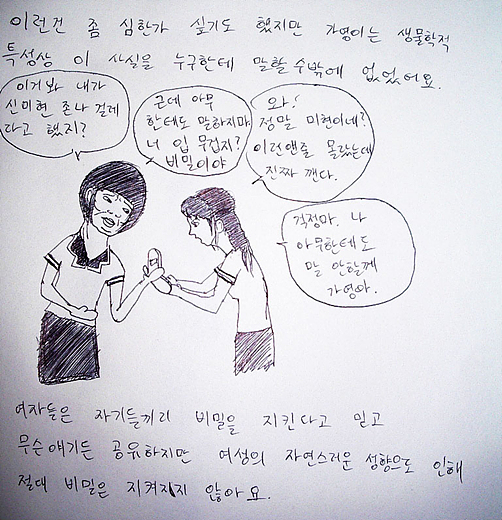 이런건 좀 심한가 싶기도 했지만 가영이는 생물학적
특성상 이 사실을 누구한테 말할수밖에 없었어요.
이거봐 내가
신미현 존나 걸레
다고 했지?
근데 아무
한테도 말하지마
너 입 무겁지?
비밀이야
와!
정말 미현이네?
이런앤줄 몰랐는데
진짜 깬다.
걱정마. 나
아무한테도
말 안할께
가영아.
여자들은 자기들끼리 비밀을 지킨다고 믿고
무슨얘기든 공유하지만 여성의 자연스러운 성향으로 인해
절대 비밀은 지켜지지 않아요.